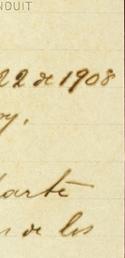 NDUIT
22 de 1908
oy.
arte
s de los